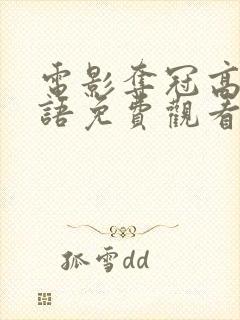 電影奪冠高
語免費觀看
孤雪dd